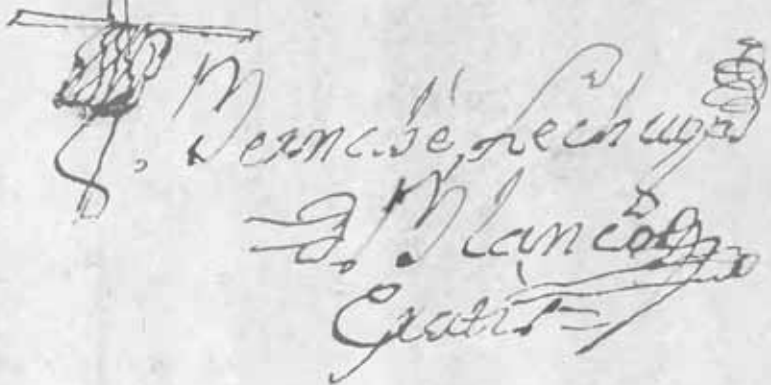 Bernabé Lechuga
Blanco
Gratis